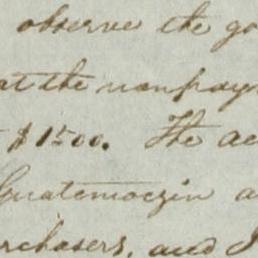 observe the go
at the nonpay
$1500. The ac
Guatemoczin a
rchasers, and I